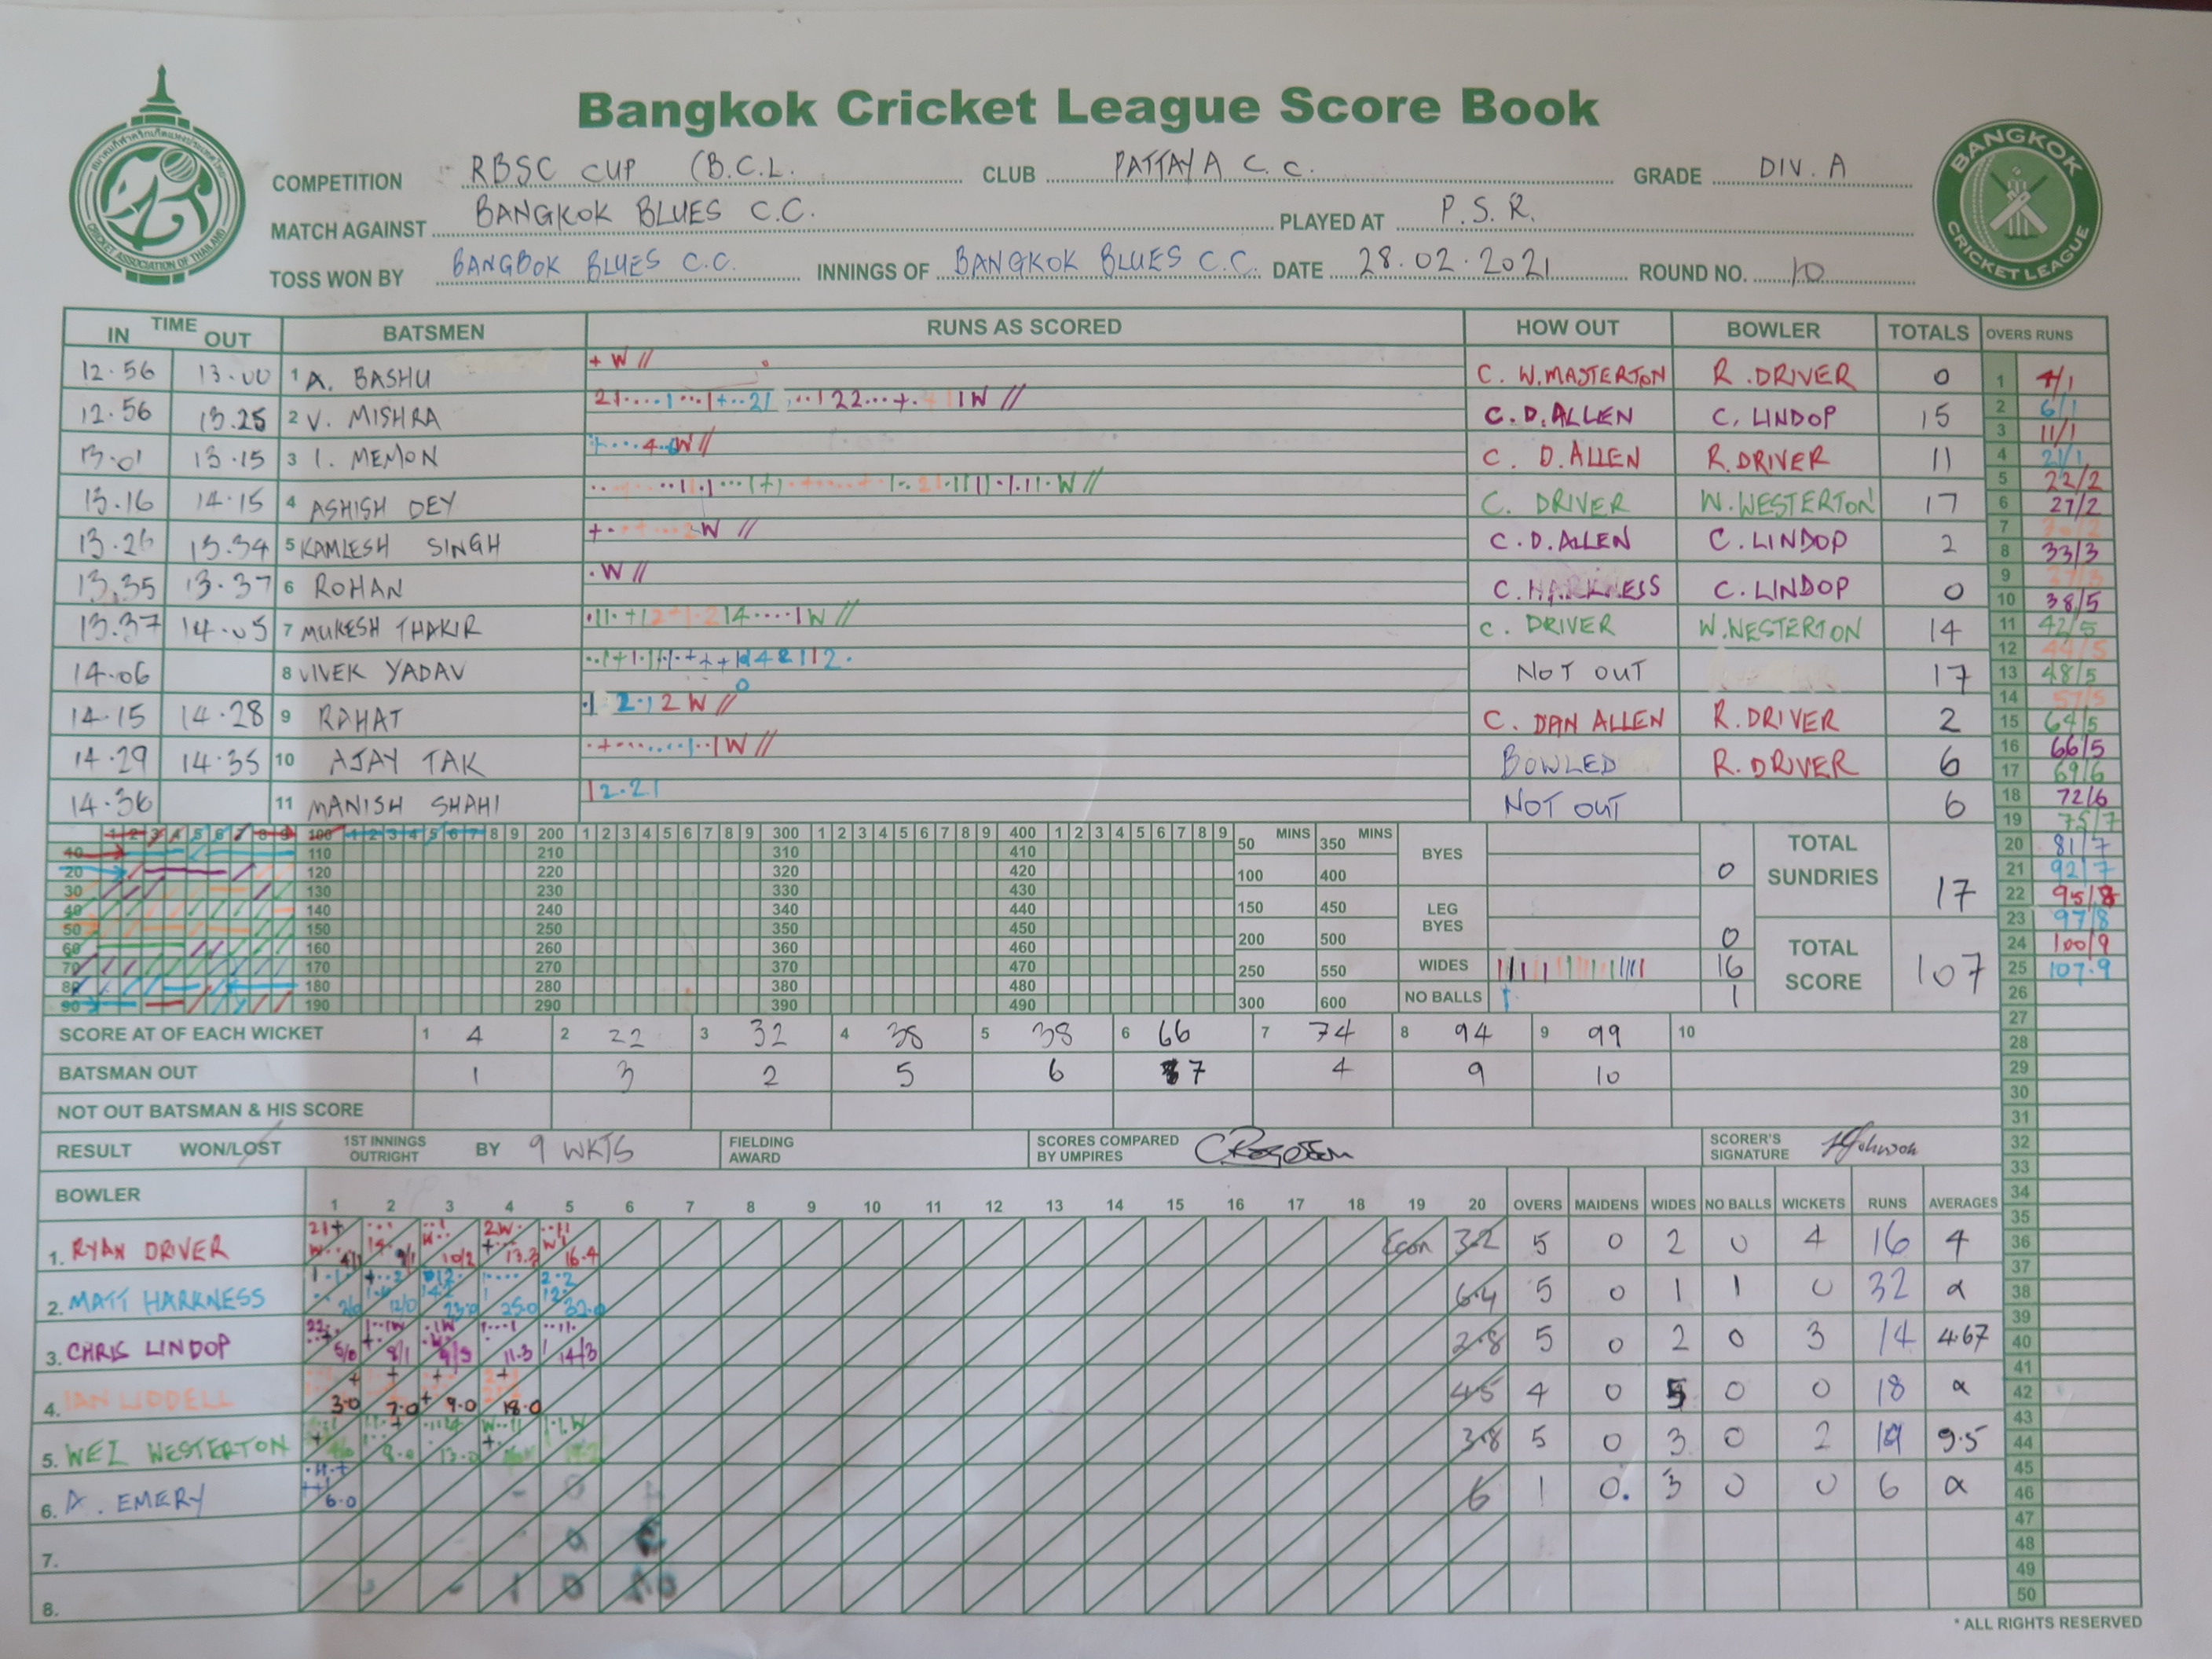 Bangkok Cricket League Score Book
COMPETITION RBSC CUP (B.C.L. CLUB PATTAYA C.C. GRADE DIV. A
MATCH AGAINST BANGKOK BLUES C.C. PLAYED AT P.S.R.
TOSS WON BY BANGBOK BLUES C.C. INNINGS OF BANGKOK BLUES C.C. DATE 28.02.2021 ROUND NO. 10
BANGKOK CRICKET LEAGUE
CRICKET ASSOCIATION OF THAILAND
TIME IN OUT BATSMEN RUNS AS SCORED HOW OUT BOWLER TOTALS OVERS RUNS
12.56 13.00 1 A. BASHU + W // C. W.MASTERTON R.DRIVER 0
12.56 13.25 2 V. MISHRA C. D.ALLEN C. LINDOP 15
13.01 13.15 3 I. MEMON C. D.ALLEN R.DRIVER 11
13.16 14.15 4 ASHISH DEY C. DRIVER W.WESTERTON 17
13.26 13.34 5 KAMLESH SINGH C.D.ALLEN C.LINDOP 2
13.35 13.37 6 ROHAN .W // C.HARKNESS C.LINDOP 0
13.37 14.05 7 MUKESH THAKIR C. DRIVER W.WESTERTON 14
14.06 8 VIVEK YADAV NOT OUT 17
14.15 14.28 9 RAHAT C. DAN ALLEN R.DRIVER 2
14.29 14.35 10 AJAY TAK BOWLED R.DRIVER 6
14.36 11 MANISH SHAHI 12.21 NOT OUT 6
1 4/1
2 6/1
3 11/1
4 21/1
5 22/2
6 27/2
7 30/2
8 33/3
9 37/3
10 38/5
11 42/5
12 44/5
13 48/5
14 57/5
15 64/5
16 66/5
17 69/6
18 72/6
19 75/7
20 81/7
21 92/7
22 95/8
23 97/8
24 100/9
25 107.9
26
27
28
29
30
31
32
33
34
35
36
37
38
39
40
41
42
43
44
45
46
47
48
49
50
1 2 3 4 5 6 7 8 9 100 1 2 3 4 5 6 7 8 9 200 1 2 3 4 5 6 7 8 9 300 1 2 3 4 5 6 7 8 9 400 1 2 3 4 5 6 7 8 9
10 110 210 310 410
20 120 220 320 420
30 130 230 330 430
40 140 240 340 440
50 150 250 350 450
60 160 260 360 460
70 170 270 370 470
80 180 280 380 480
90 190 290 390 490
MINS MINS
50 350
100 400
150 450
200 500
250 550
300 600
BYES 0
LEG BYES 0
WIDES 16
NO BALLS 1
TOTAL SUNDRIES 17
TOTAL SCORE 107
SCORE AT OF EACH WICKET 1 4 2 22 3 32 4 38 5 38 6 66 7 74 8 94 9 99 10
BATSMAN OUT 1 3 2 5 6 7 4 9 10
NOT OUT BATSMAN & HIS SCORE
RESULT WON/LOST 1ST INNINGS OUTRIGHT BY 9 WKTS FIELDING AWARD SCORES COMPARED BY UMPIRES SCORER'S SIGNATURE Johnson
BOWLER 1 2 3 4 5 6 7 8 9 10 11 12 13 14 15 16 17 18 19 20 OVERS MAIDENS WIDES NO BALLS WICKETS RUNS AVERAGES
1. RYAN DRIVER 4/1 9/1 10/2 13.3 16.4 Econ 3.2 5 0 2 0 4 16 4
2. MATT HARKNESS 2/0 12/0 23.0 25.0 32.0 6.4 5 0 1 1 0 32 α
3. CHRIS LINDOP 5/0 8/1 9/3 11.3 14/3 2.8 5 0 2 0 3 14 4.67
4. IAN LIDDELL 3.0 7.0 9.0 18.0 4.5 4 0 5 0 0 18 α
5. WEZ WESTERTON 3.8 5 0 3 0 2 19 9.5
6. A. EMERY 6.0 6 1 0. 3 0 0 6 α
7.
8.
* ALL RIGHTS RESERVED